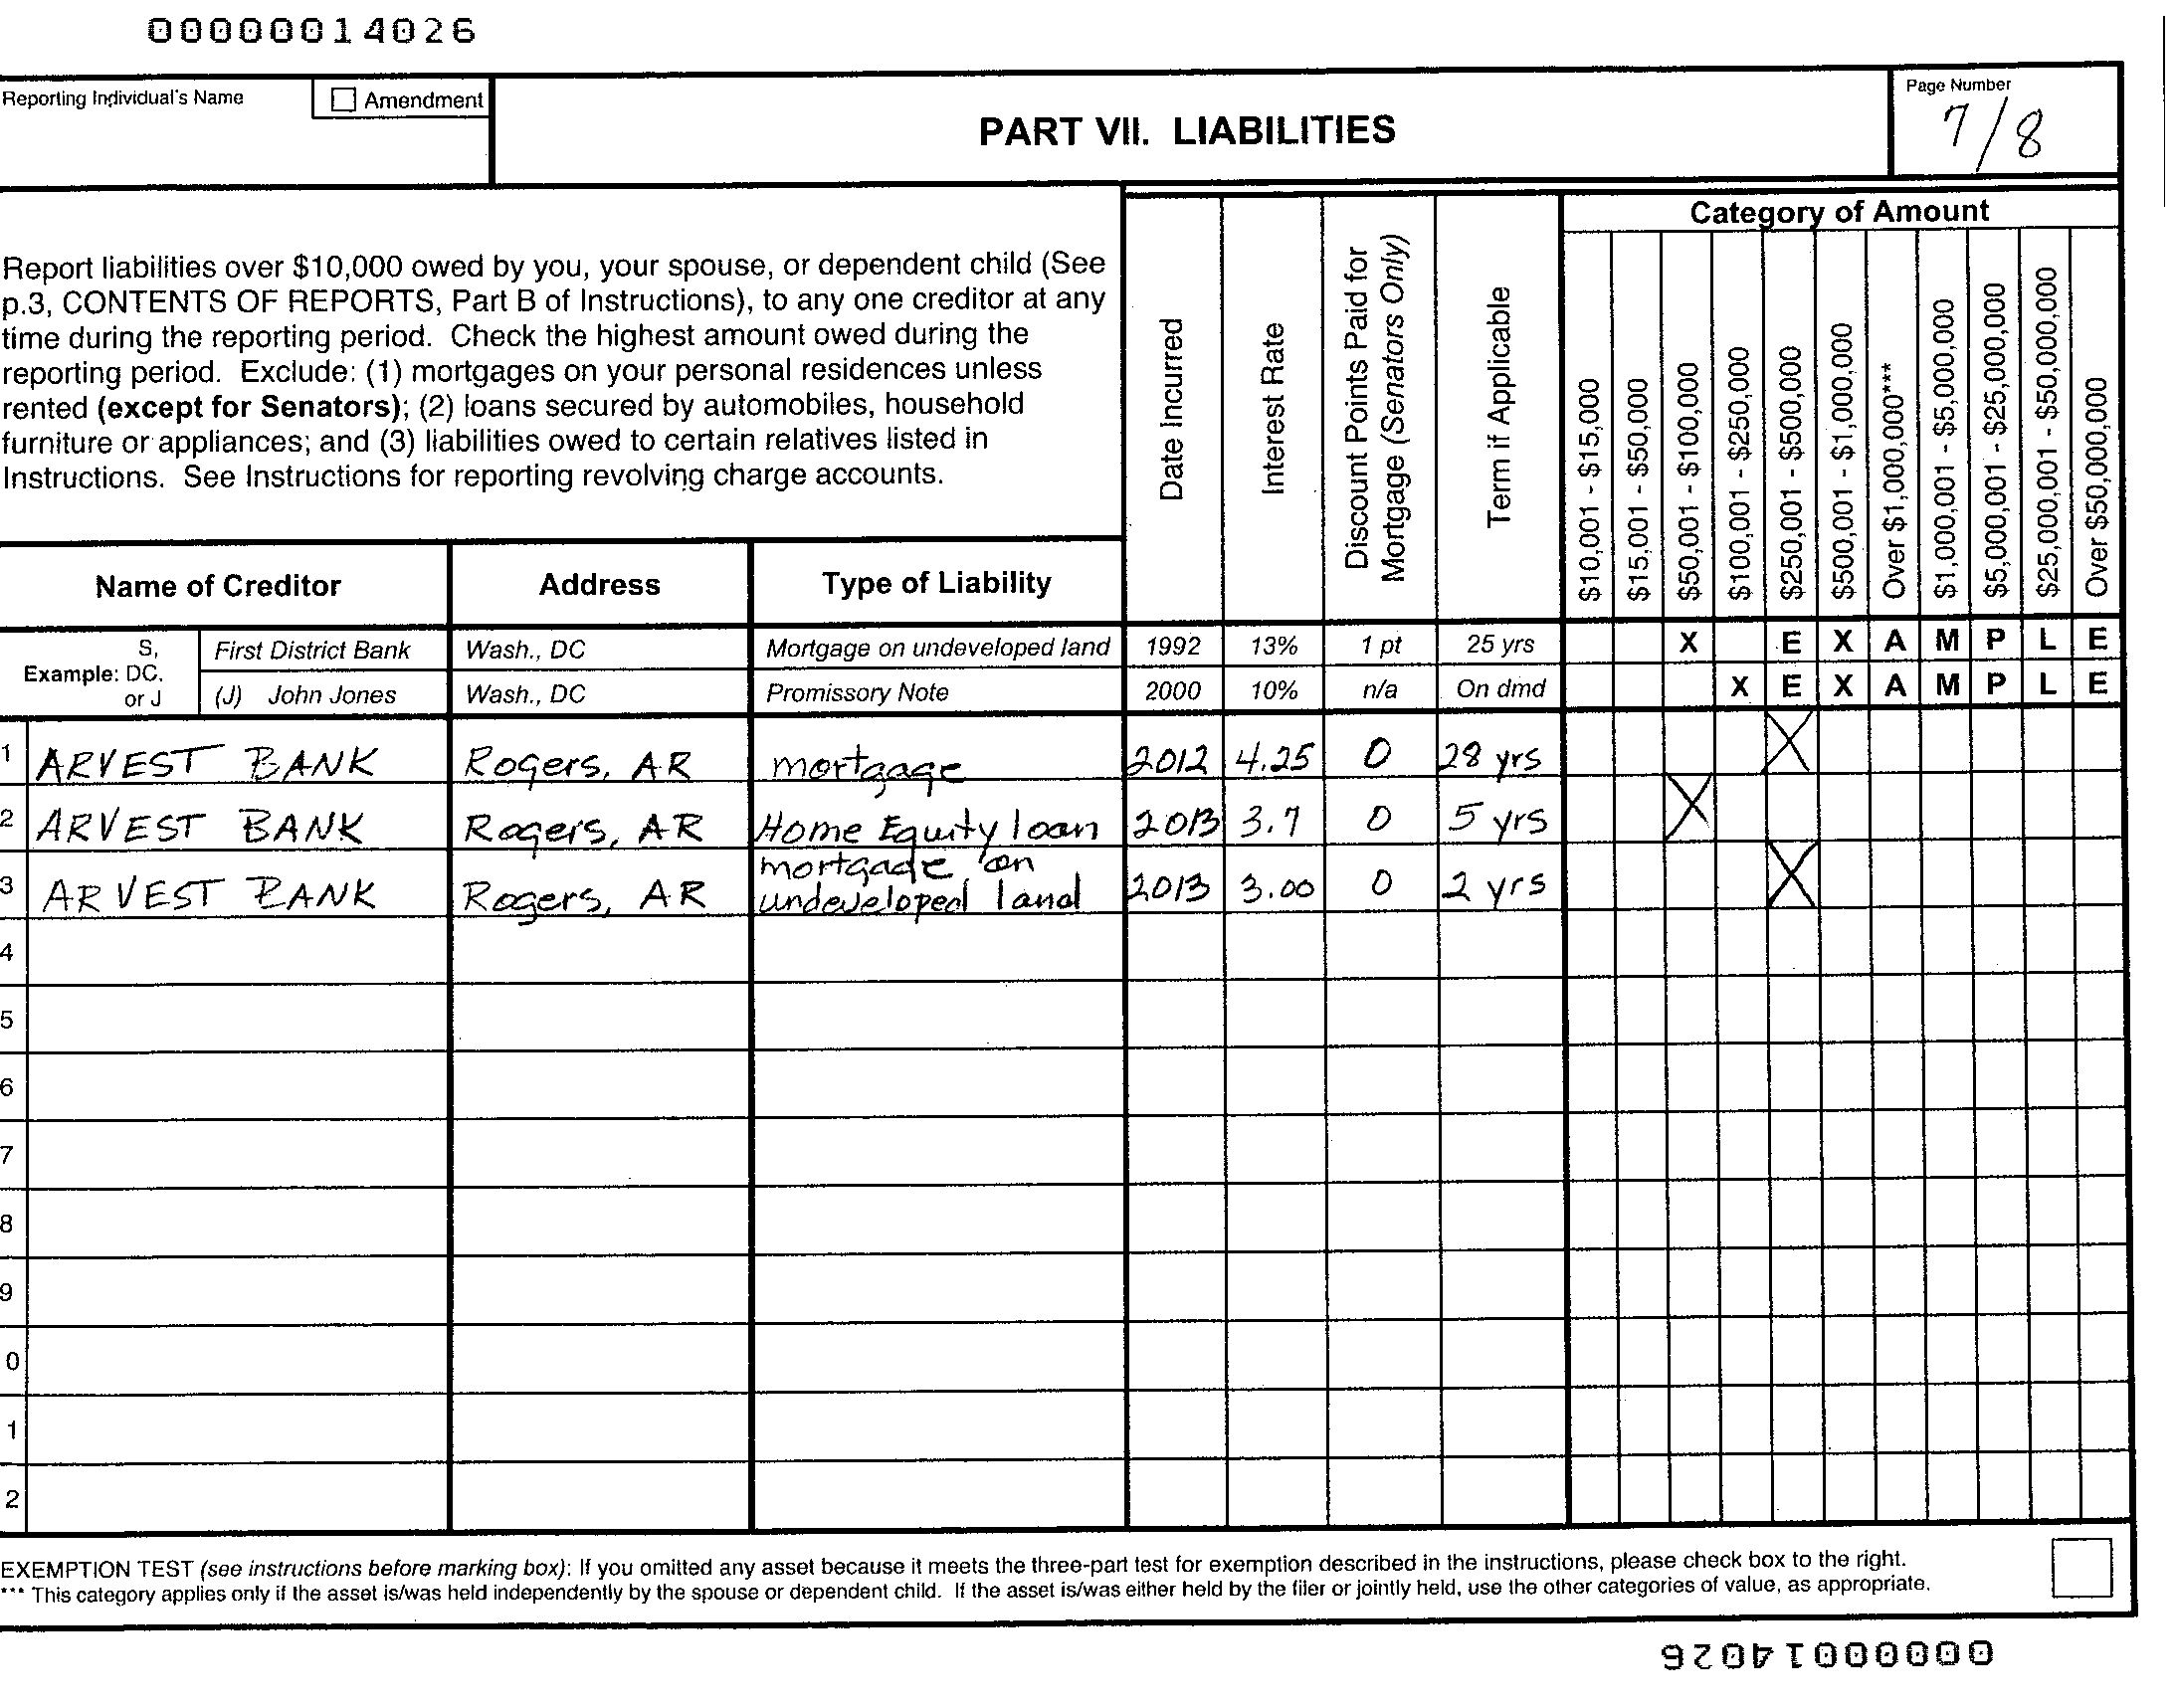 00000014026
Reporting Individual's Name
Amendment
PART VII. LIABILITIES
Page Number
7/8
Report liabilities over $10,000 owed by you, your spouse, or dependent child (See
p.3, CONTENTS OF REPORTS, Part B of Instructions), to any one creditor at any
time during the reporting period. Check the highest amount owed during the
reporting period. Exclude: (1) mortgages on your personal residences unless
rented (except for Senators); (2) loans secured by automobiles, household
furniture or appliances; and (3) liabilities owed to certain relatives listed in
Instructions. See Instructions for reporting revolving charge accounts.
Date Incurred
Interest Rate
Discount Points Paid for
Mortgage (Senators Only)
Term if Applicable
Category of Amount
$10,001 - $15,000
$15,001 - $50,000
$50,001 - $100,000
$100,001 - $250,000
$250,001 - $500,000
$500,001 - $1,000,000
Over $1,000,000***
$1,000,001 - $5,000,000
$5,000,001 - $25,000,000
$25,000,001 - $50,000,000
Over $50,000,000
Name of Creditor Address Type of Liability
Example: S, DC. or J
First District Bank Wash., DC Mortgage on undeveloped land 1992 13% 1 pt 25 yrs X E X A M P L E
(J) John Jones Wash., DC Promissory Note 2000 10% n/a On dmd X E X A M P L E
1 ARVEST BANK Rogers, AR mortgage 2012 4.25 0 28 yrs X
2 ARVEST BANK Rogers, AR Home Equity loan 2013 3.7 0 5 yrs X
3 ARVEST BANK Rogers, AR mortgage on undeveloped land 2013 3.00 0 2 yrs X
4
5
6
7
8
9
0
1
2
EXEMPTION TEST (see instructions before marking box): If you omitted any asset because it meets the three-part test for exemption described in the instructions, please check box to the right.
*** This category applies only if the asset is/was held independently by the spouse or dependent child. If the asset is/was either held by the filer or jointly held, use the other categories of value, as appropriate.
00000014026